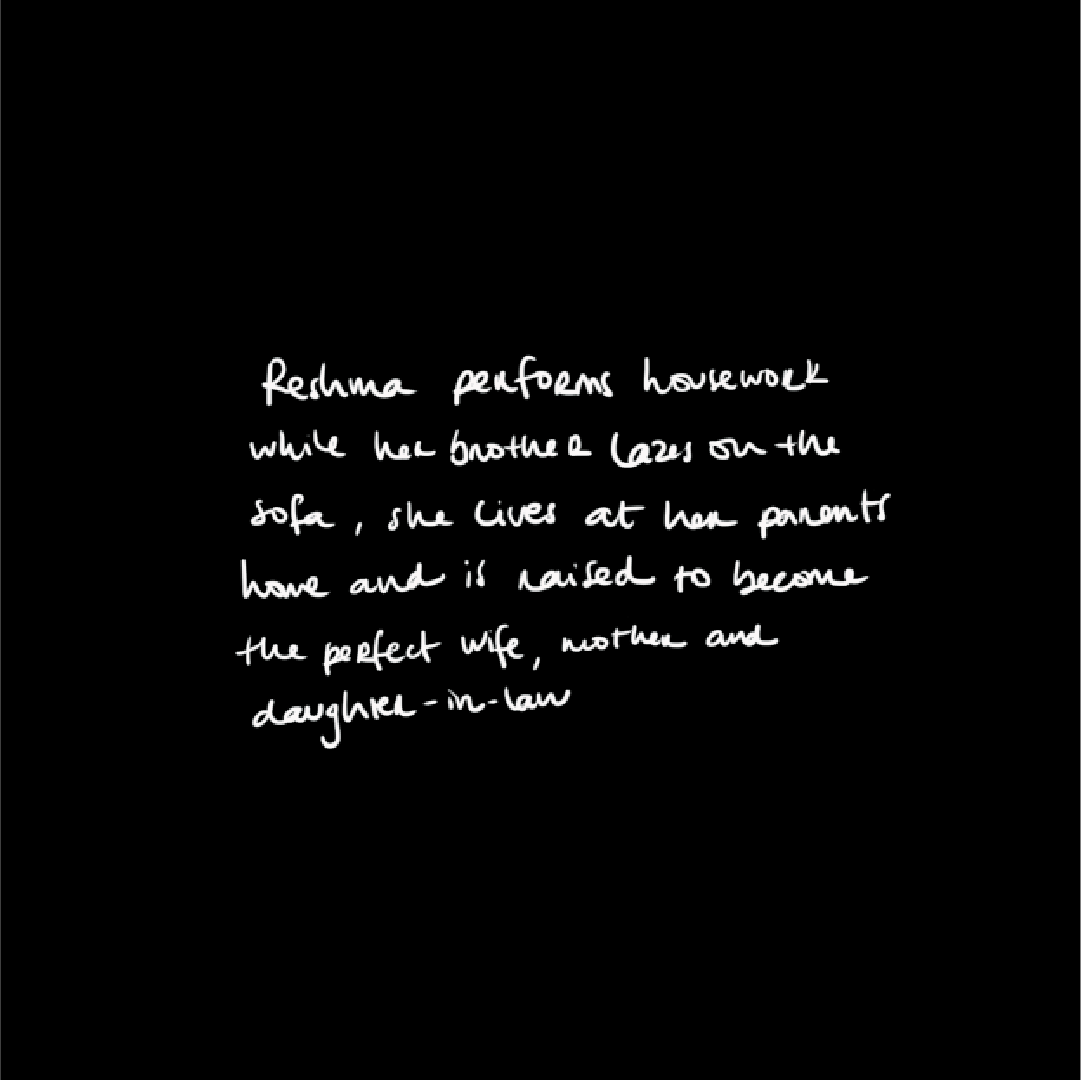 Reshma performs housework
while her brother lazes on the
sofa, she lives at her parents
home and is raised to become
the perfect wife, mother and
daughter-in-law